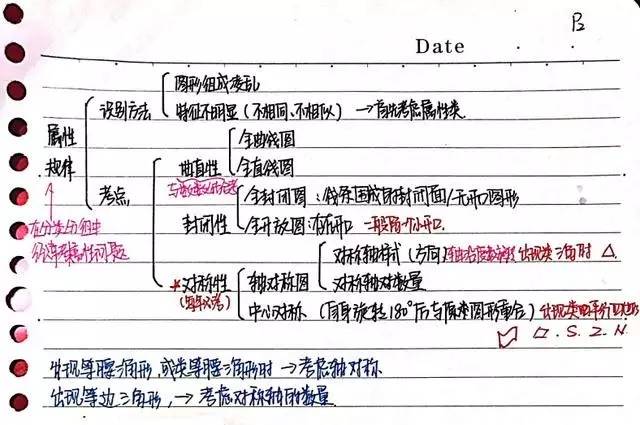 P2
Date
图形组成凌乱
识别方法
特征不明显（不相同、不相似） → 首先考虑属性类
属性
规律
全曲线图
曲直性
全直线图
考点
全封闭图：线条围成的封闭面/无开口图形
封闭性
全开放图：有开口 一般留一个小开口.
在分类分组中
对称轴样式（方向） 出现类三角时 △.
*对称性
轴对称图
对称轴对数量
(每年必考)
中心对称（自身旋转180°后与原来图形重合） 出现类平行四边形
▱. S. Z. N.
出现等腰三角形，或类等腰三角形时 → 考虑轴对称
出现等边三角形，→ 考虑对称轴的数量